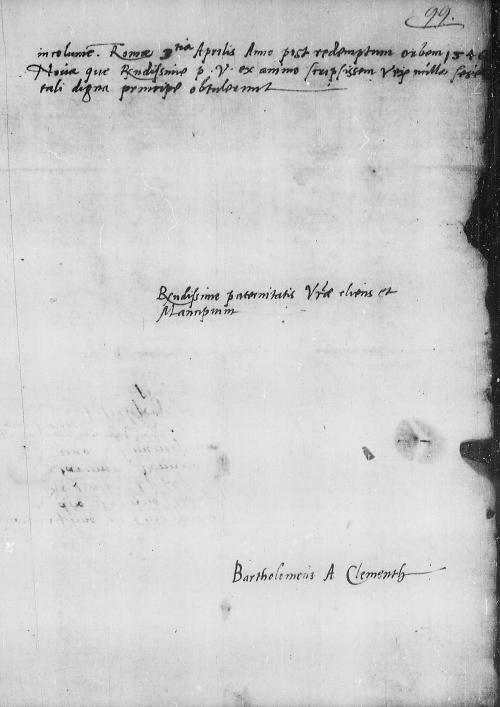 99.
incolumē. Romæ 3tia Aprilis Anno post redemptum orbem 154
Noua que Rndissime p. V. ex animo scripsissem Vrē nulla
tali digna principe obtulerunt
Rndissime paternitatis Vræ cliens et
Mancipium
Bartholomeus A Clementh